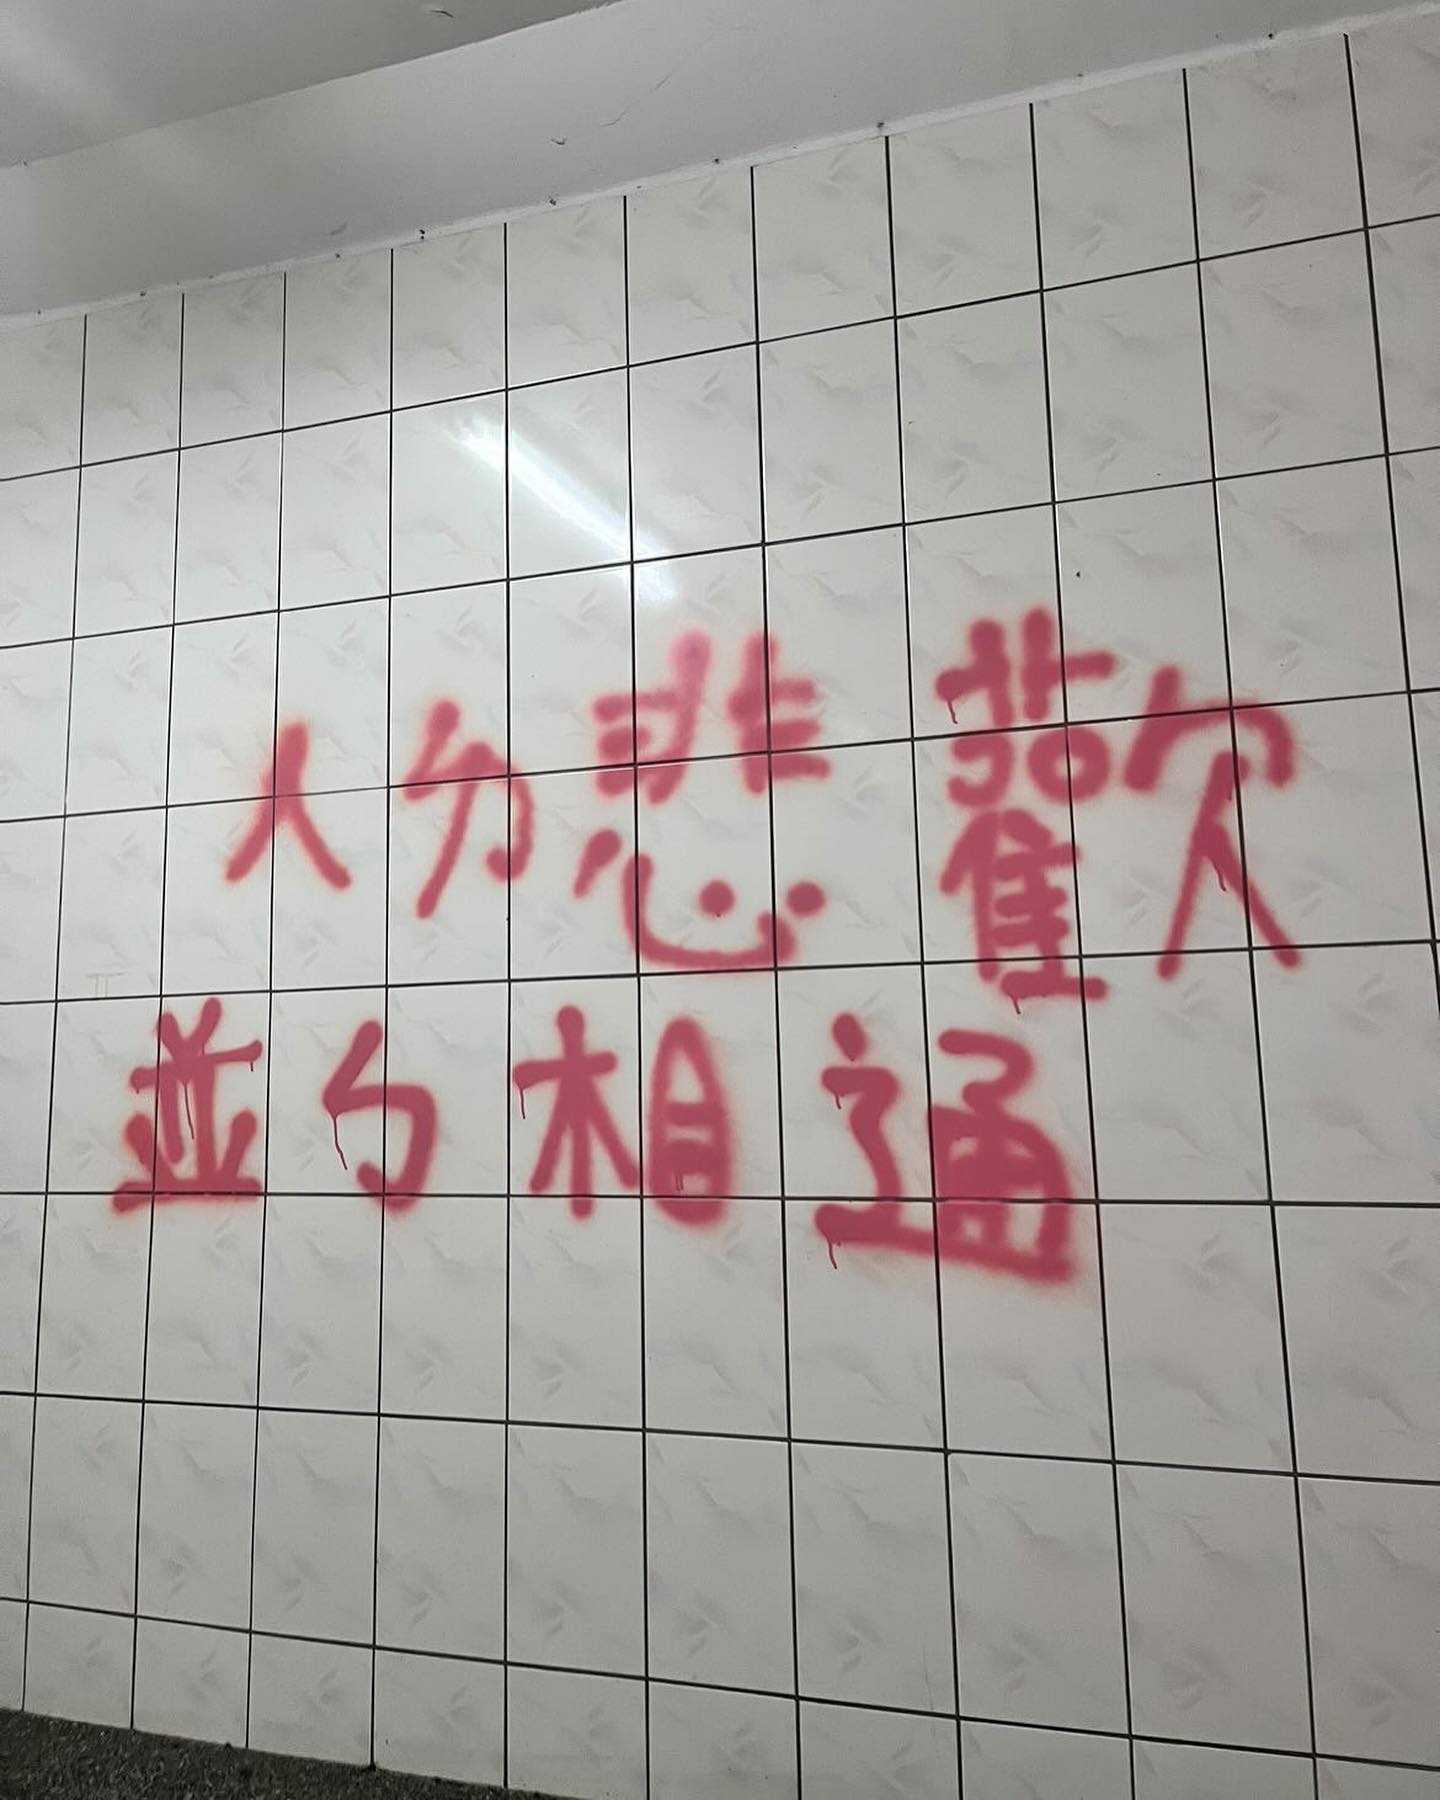 人ㄉ悲歡
並ㄅ相通